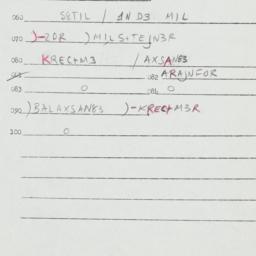 060 SETIL / 1N D3 MIL
070 )-ZDR )MILSTEJN3R
080 KRECHM3 / AXSAN83
082 ARAJNFOR
083 O 084 O
090 )BALAXSAN83 )-KRECHM3R
100 O